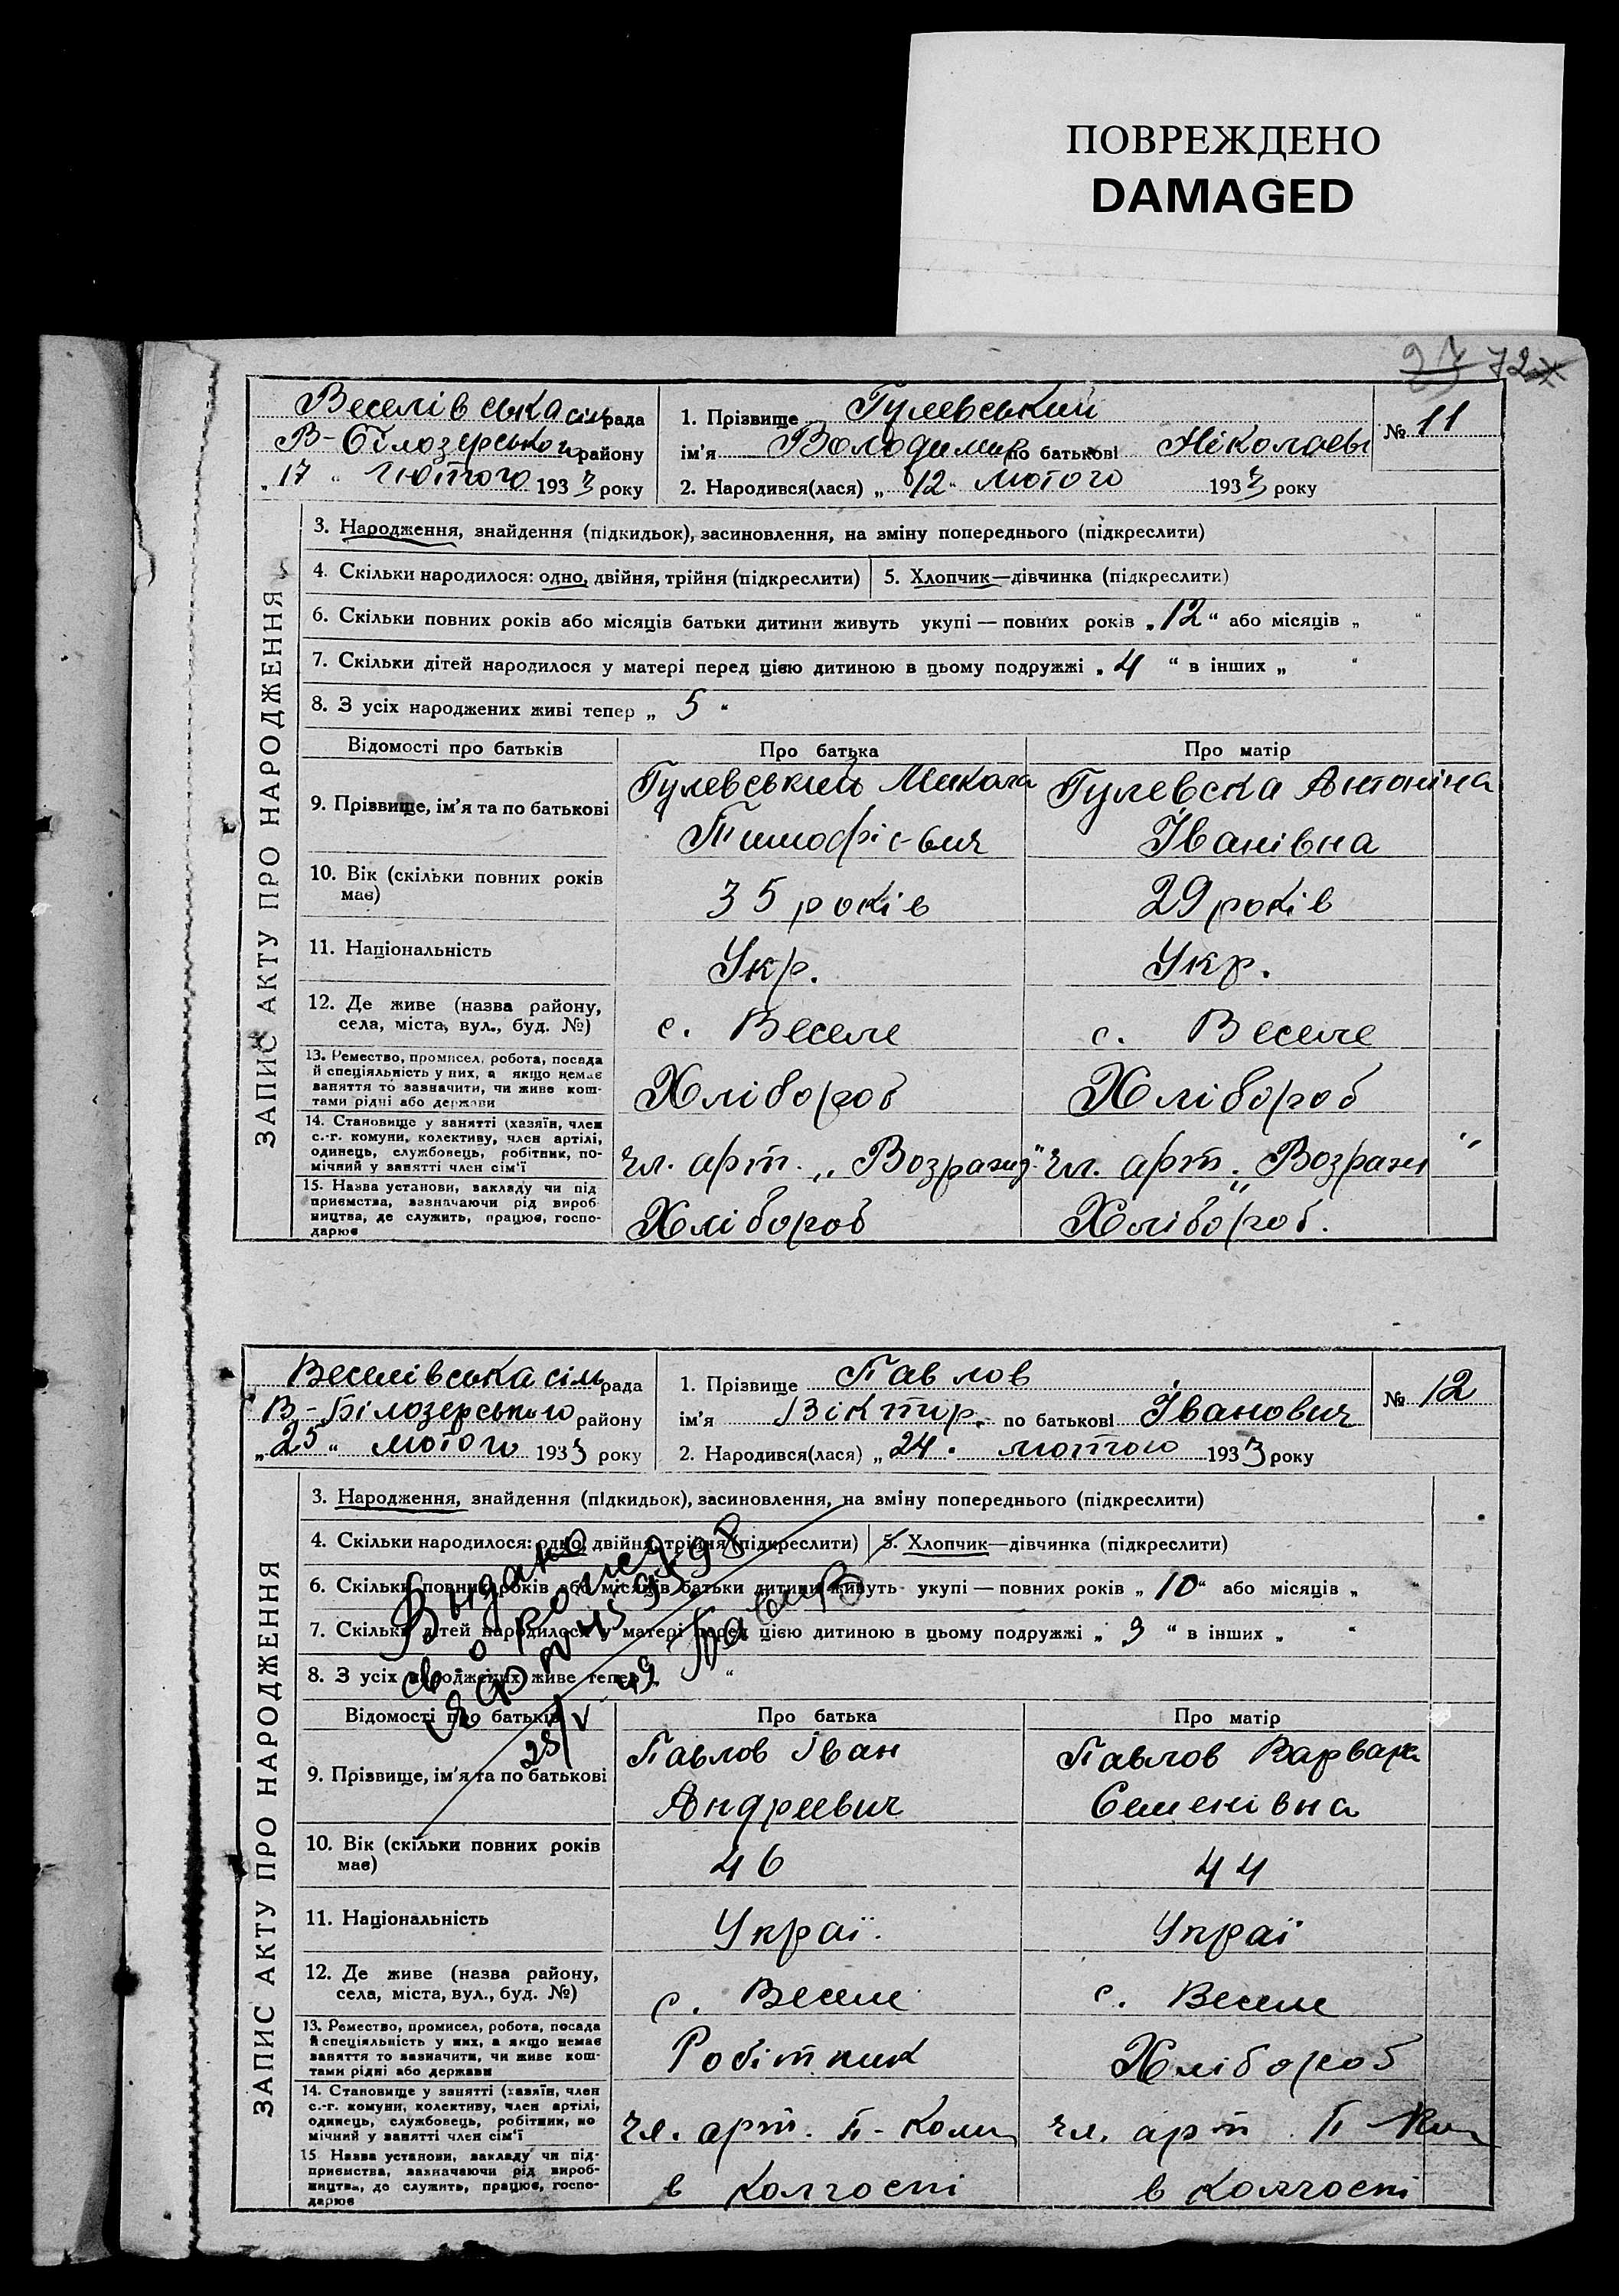 ПОВРЕЖДЕНО
DAMAGED
72
Веселівська сільрада
В-Білозерського району
„17“ Лютого 1933 року
1. Прізвище Гулевський
ім'я Володимир по батькові Ніколаевич
2. Народився(лася) „12“ лютого 1933 року
№ 11
ЗАПИС АКТУ ПРО НАРОДЖЕННЯ
3. Народження, знайдення (підкидьок), засиновлення, на зміну попереднього (підкреслити)
4. Скільки народилося: одно, двійня, трійня (підкреслити)
5. Хлопчик—дівчинка (підкреслити)
6. Скільки повних років або місяців батьки дитини живуть укупі — повних років „12“ або місяців „ “
7. Скільки дітей народилося у матері перед цією дитиною в цьому подружжі „4“ в інших „ “
8. З усіх народжених живі тепер „5“
Відомості про батьків
Про батька
Про матір
9. Прізвище, ім'я та по батькові
Гулевський Микола
Тимофієвич
Гулевска Антоніна
Іванівна
10. Вік (скільки повних років
має)
35 років
29 років
11. Національність
Укр.
Укр.
12. Де живе (назва району,
села, міста, вул., буд. №)
с. Веселе
с. Веселе
13. Ремество, промисел, робота, посада
й спеціяльність у них, а якщо немає
заняття то зазначити, чи живе кош-
тами рідні або держави
Хлібороб
Хлібороб
14. Становище у занятті (хазяїн, член
с.-г. комуни, колективу, член артілі,
одинець, службовець, робітник, по-
мічний у занятті член сім'ї
Чл. арт. „
Чл. арт. „
15. Назва установи, закладу чи під
приємства, зазначаючи рід вироб-
ництва, де служить, працює, госпо-
дарює
Хлібороб
Хлібороб.
Веселівська сільрада
В-Білозерського району
„25“ лютого 1933 року
1. Прізвище Павлов
ім'я Віктир. по батькові Іванович
2. Народився(лася) „24. лютого 1933 року
№ 12
ЗАПИС АКТУ ПРО НАРОДЖЕННЯ
3. Народження, знайдення (підкидьок), засиновлення, на зміну попереднього (підкреслити)
4. Скільки народилося: одно, двійня, трійня (підкреслити)
5. Хлопчик—дівчинка (підкреслити)
6. Скільки повних років або місяців батьки дитини живуть укупі — повних років „10“ або місяців „ “
7. Скільки дітей народилося у матері перед цією дитиною в цьому подружжі „3“ в інших „ “
8. З усіх народжених живе тепер „ “
Выдано
св. о рожд
Відомості про батьків
Про батька
Про матір
9. Прізвище, ім'я та по батькові
Павлов Іван
Андреевич
Павлов Варвара
Семенівна
10. Вік (скільки повних років
має)
46
44
11. Національність
Украї.
Украї
12. Де живе (назва району,
села, міста, вул., буд. №)
с. Веселе
с. Веселе
13. Ремество, промисел, робота, посада
й спеціяльність у них, а якщо немає
заняття то зазначити, чи живе кош-
тами рідні або держави
Робітник
Хлібороб
14. Становище у занятті (хазяїн, член
с.-г. комуни, колективу, член артілі,
одинець, службовець, робітник, по
мічний у занятті член сім'ї
Чл. арт. П-Ком
Чл. арт. П
15 Назва установи, закладу чи під-
приємства, зазначаючи рід вироб-
ництва, де служить, працює, госпо-
дарює
в колгоспі
в колгоспі